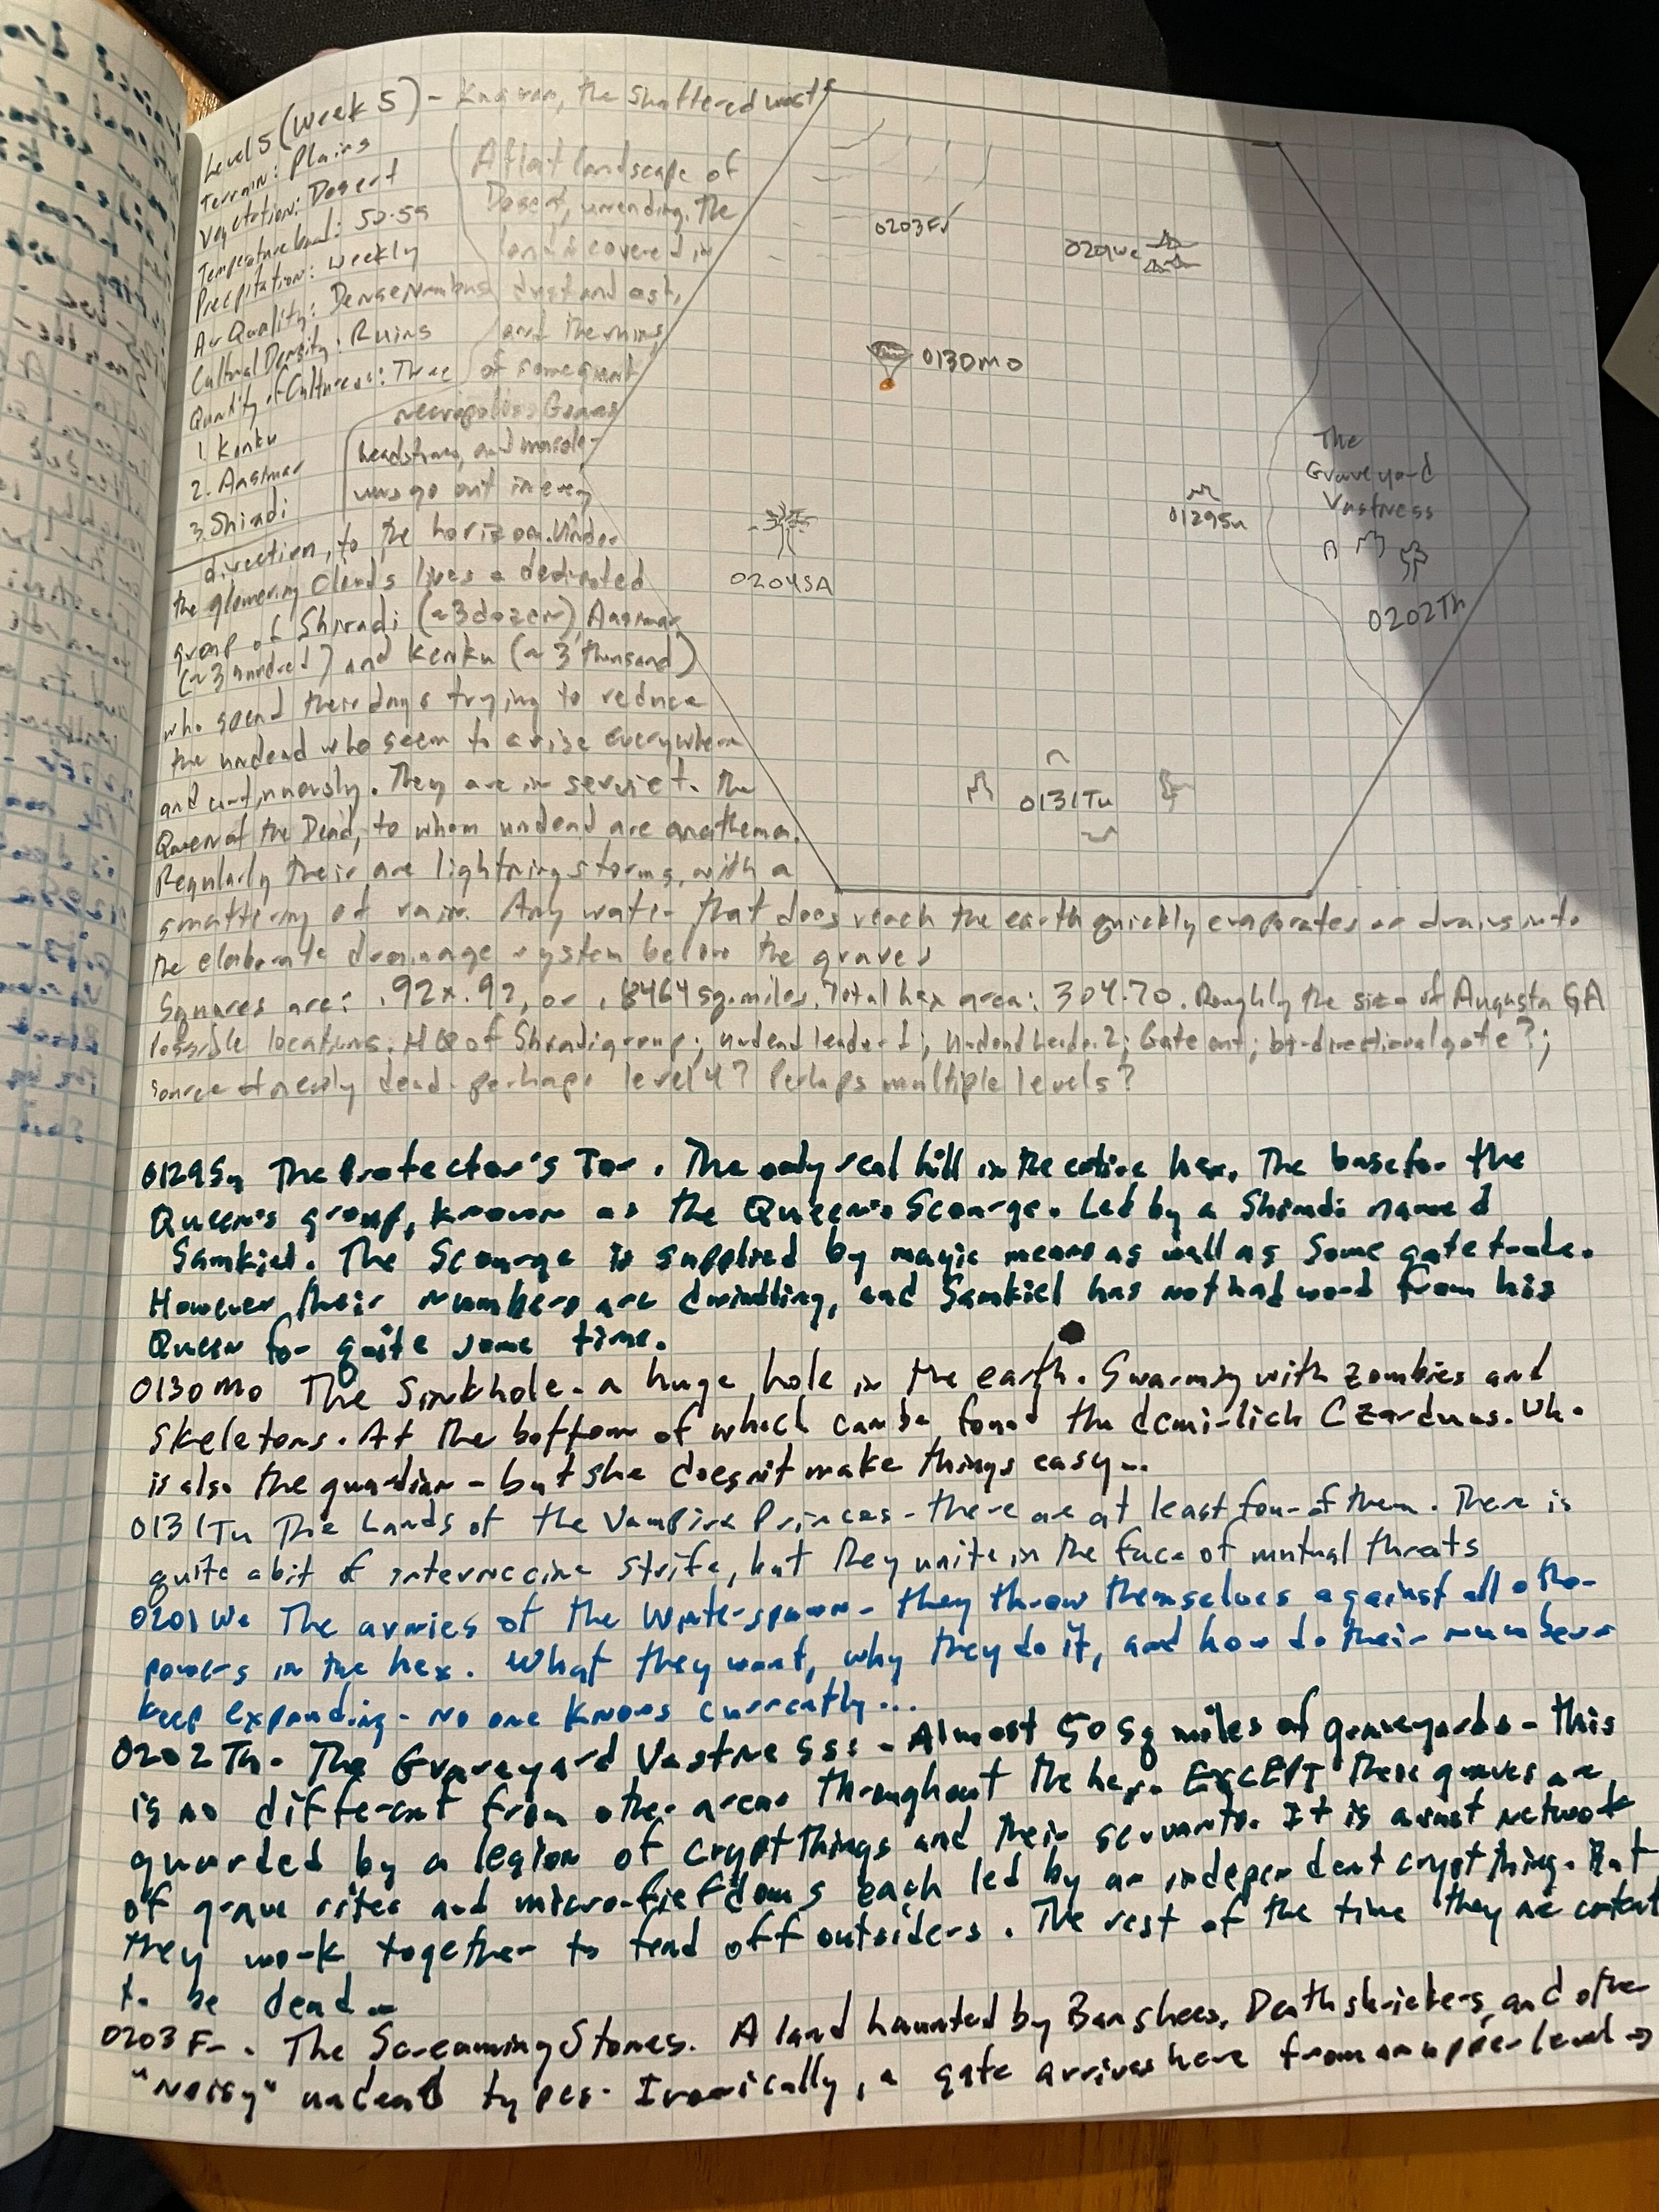 Level 5 (Week 5) - the shattered waste
Terrain: Plains
Vegetation: Desert
Temperature band: 50-59
Precipitation: Weekly
Air Quality: Dense Nimbus
Cultural Density: Ruins
Quantity of Cultures: Three
1. Kenku
2. Aasimar
3. Shiradi
A flat landscape of
Desert, unending. The
land is covered in
dust and ash,
and the ruins
of some great
necropolis. Graves
headstones, and mausole-
ums go out in every
direction, to the horizon. Under
the glowering clouds lives a dedicated
group of Shiradi (~3 dozen), Aasimar
(~3 hundred) and Kenku (~3 thousand)
who spend their days trying to reduce
the undead who seem to arise everywhere
and continuously. They are in service to the
Queen of the Dead, to whom undead are anathema.
Regularly their are lightning storms, with a
smattering of rain. Any water that does reach the earth quickly evaporates or drains into
the elaborate drainage system below the graves
Squares are: .92x.92, or .8464 sq.miles. Total hex area: 304.70. Roughly the size of Augusta GA
Possible locations: HQ of Shiradi group; undead leader 1; undead leader 2; Gate out; bi-directional gate?;
source of newly dead - perhaps level 4? Perhaps multiple levels?
0203Fr
0201We
0130Mo
The
Graveyard
Vastness
0129Su
0204SA
0202Th
0131Tu
0129Su The Protector's Tor. The only real hill in the entire hex. The base for the
Queen's group, known as the Queen's Scourge. Led by a Shiradi named
Samkiel. The Scourge is supplied by magic means as well as some gate trade.
However, their numbers are dwindling, and Samkiel has not had word from his
Queen for quite some time.
0130Mo The Sinkhole - a huge hole in the earth. Swarming with zombies and
skeletons. At the bottom of which can be found the demi-lich Czarduus. Who
is also the guardian - but she doesn't make things easy...
0131Tu The Lands of the Vampire Princes - there are at least four of them. There is
quite a bit of internecine strife, but they unite in the face of mutual threats
0201We The armies of the Winterspawn - they throw themselves against all other
powers in the hex. What they want, why they do it, and how do their numbers
keep expanding - no one knows currently...
0202Th - The Graveyard Vastness: - Almost 50 sq miles of graveyards - this
is no different from other areas throughout the hex. EXCEPT these graves are
guarded by a legion of crypt things and their servants. It is a vast network
of grave sites and micro-fiefdoms each led by an independent crypt thing. But
they work together to fend off outsiders. The rest of the time they are content
to be dead...
0203Fr. The Screaming Stones. A land haunted by Banshees, Deathshriekers, and other
"noisy" undead types. Ironically, a gate arrives here from an upper level →